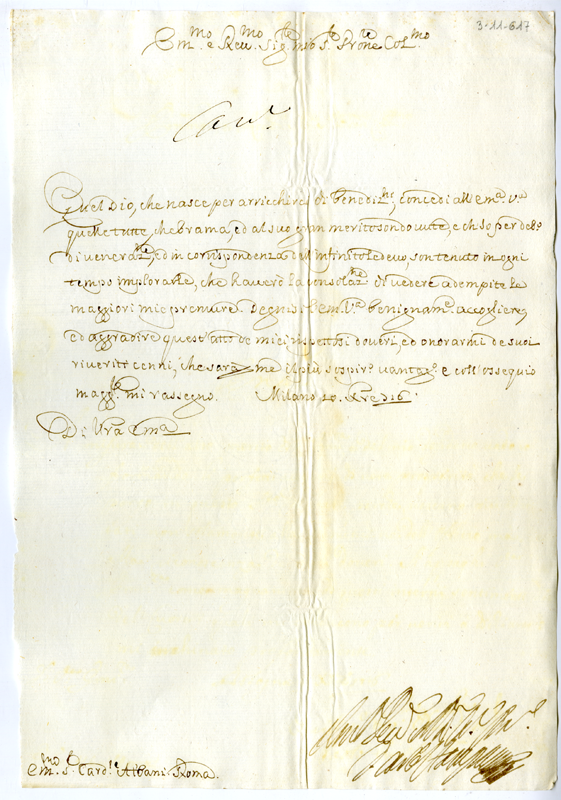 3-11-617
Em.mo e Rev.mo Sig.re mio S.re P.rone Col.mo
Quel Dio, che nasce per arricchirci di benediz.ni, concedi all'Em.a V.a
quelle tutte, che brama, ed al suo gran merito son dovute, e ch'io per deb.o
di veneraz.ne, ed in corrispondenza dell'infinito le devo, son tenuto in ogni
tempo implorarle, che haverò la consolaz.ne di vedere adempite le
maggiori mie premure. Degnisi l'Em.a V.a benignam.e accogliere,
ed aggradire quest'atto de miei rispettosi doveri, ed onorarmi de suoi
riveriti cenni, che sarà me il più sospir.o vantag.o e coll'ossequio
magg.re mi rassegno. Milano
Di Vra Em.a
Em.mo S.r Card.le Albani Roma.